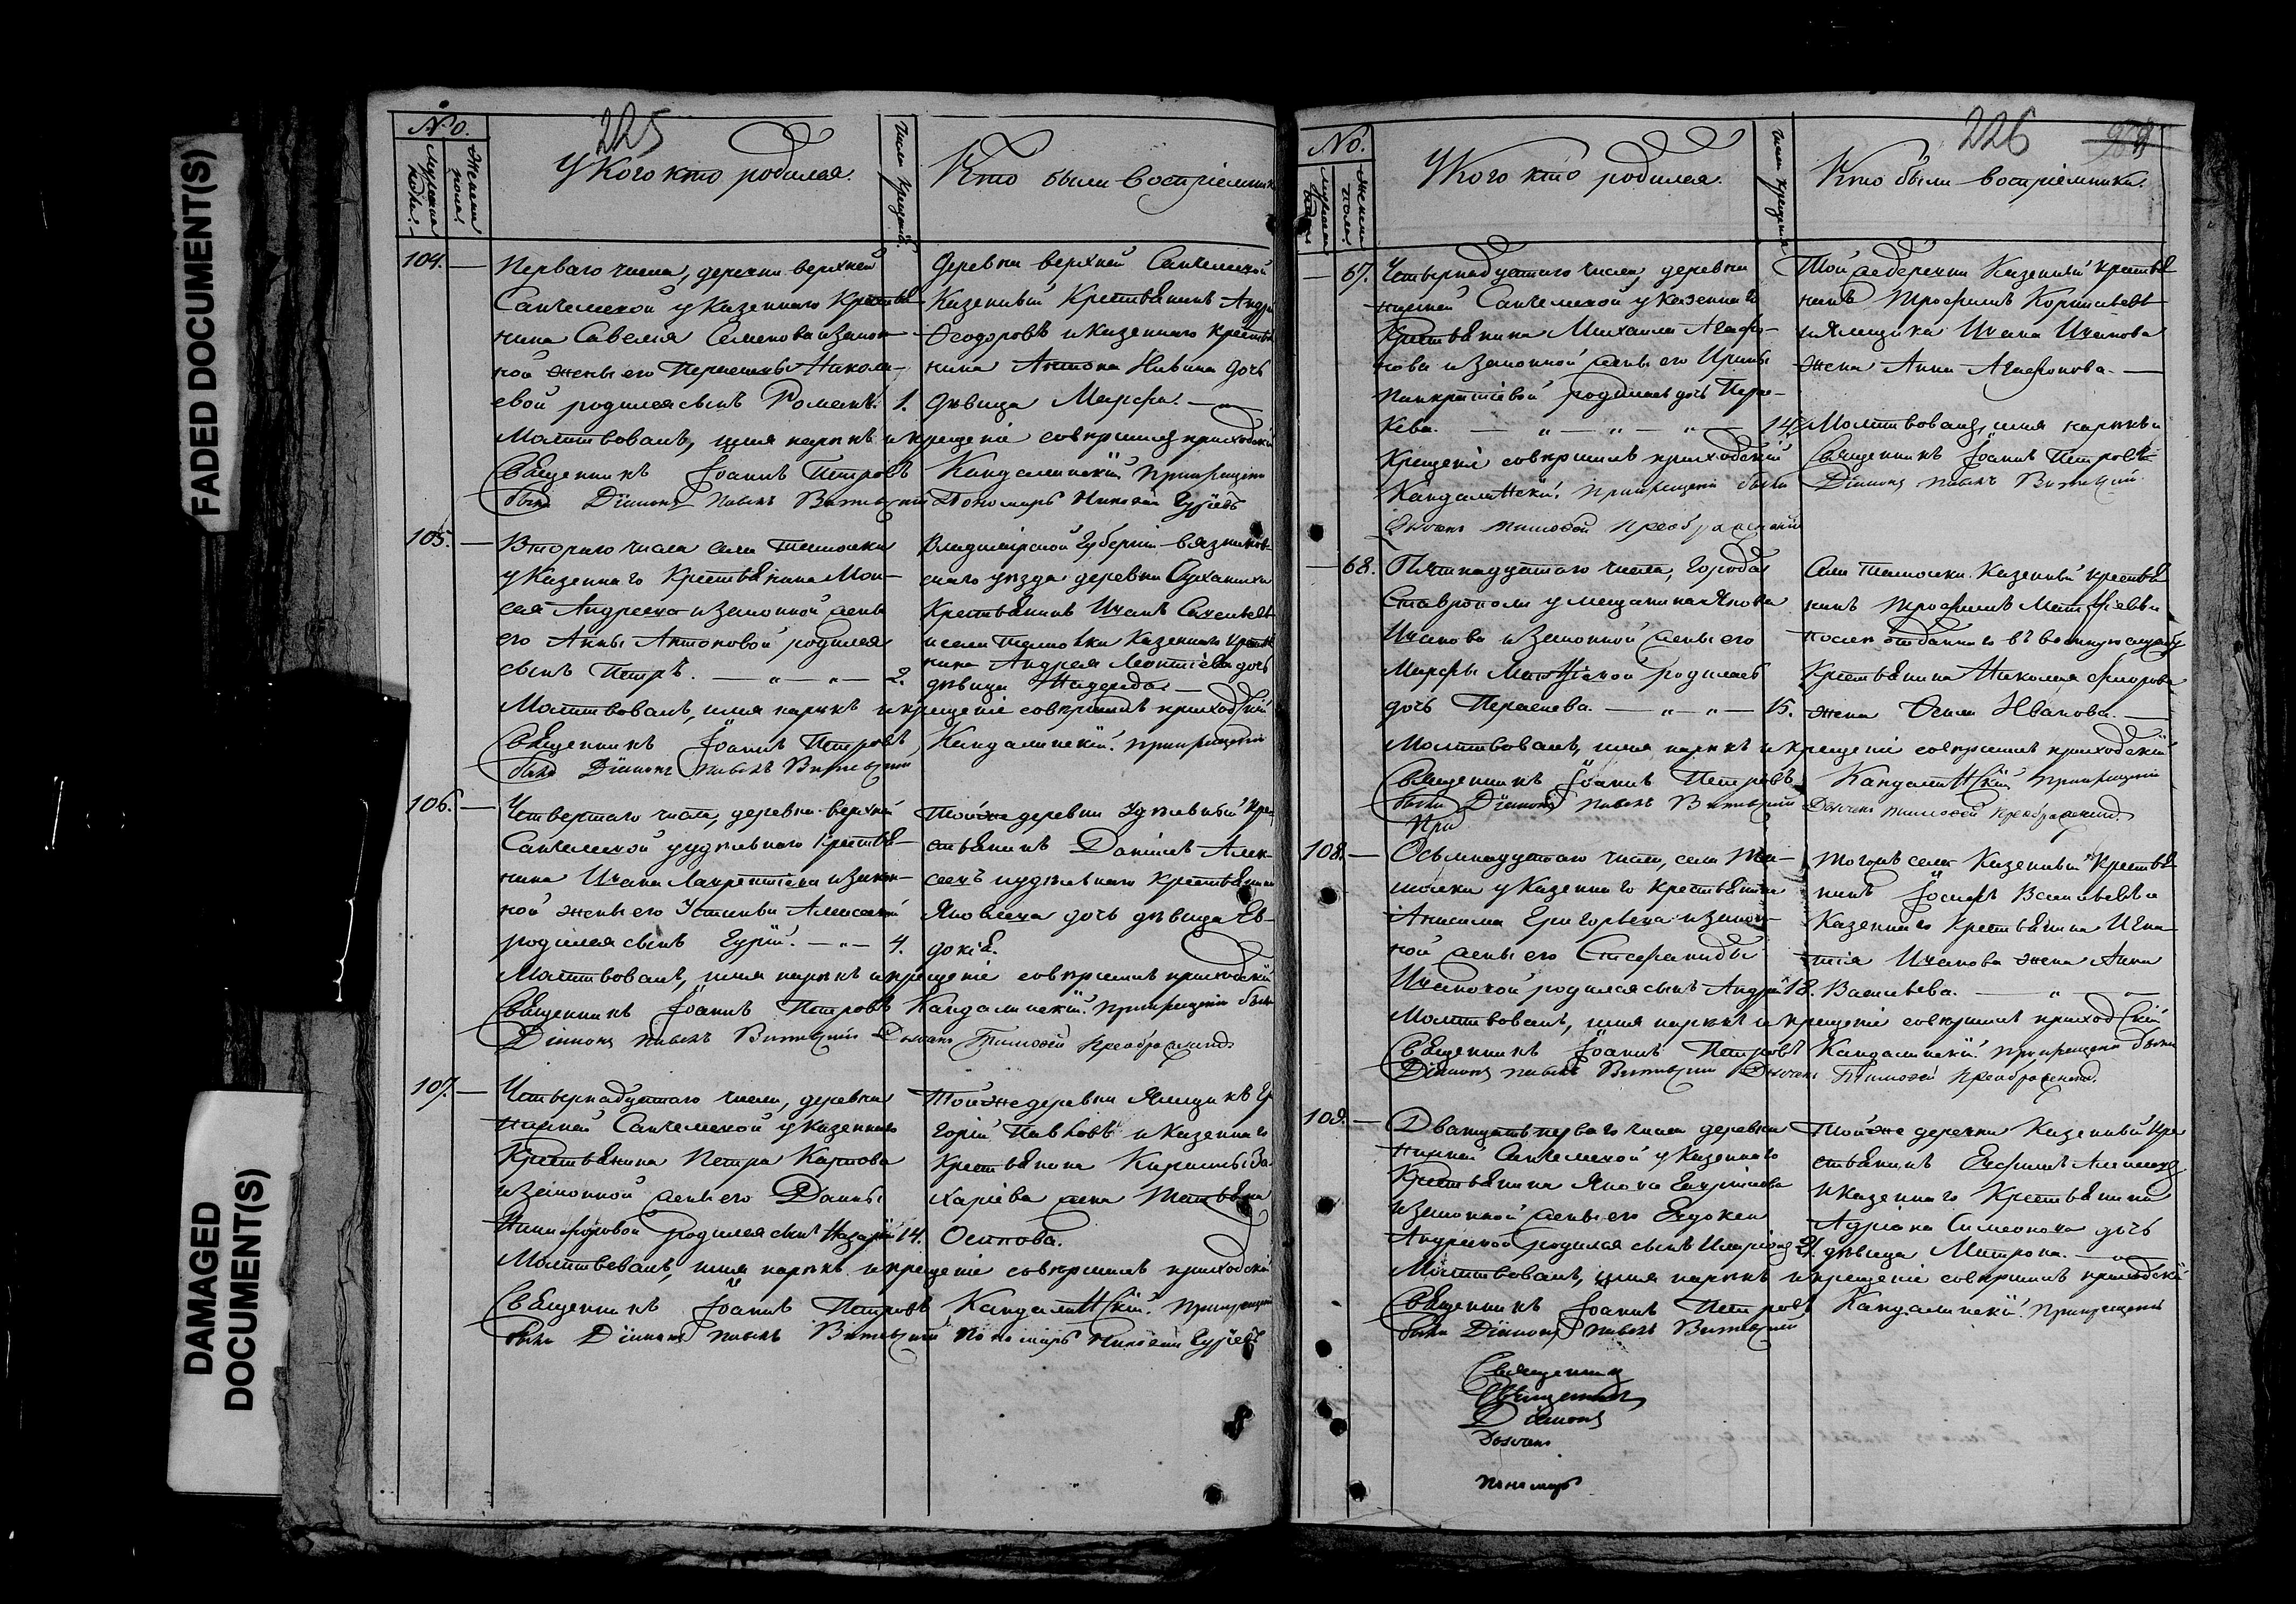 FADED DOCUMENT(S)
DAMAGED
DOCUMENT(S)
225
No.
Мужеска пола.
Женска пола.
У Кого кто родился.
Число Крещенiй.
Кто были воспрiемники
104.
Перваго числа, деревни верхней
Санчелеской у Казеннаго Крестья-
нина Савелiя Семенова и закон-
ной жены его Пелагеи Никола-
евой родился сынъ Романъ. 1.
Деревни верхней Санчелеской
Казенный Крестьянинъ Андрей
Ѳеодоровъ и Казеннаго Крестья
нина Антона дочь
дѣвица Марѳа.
Молитвовалъ, имя нарекъ и крещенiе совершилъ приходскiй
Священникъ Iоаннъ Петровъ Кандалинскiй. При крещенiи
были Дiаконъ Павелъ Пономарь Николай Гурьевъ
105.
Втораго числа села Ташолки
у Казеннаго Крестьянина Мои-
сея Андреева и законной жены
его Анны Антоновой родился
сынъ Петръ. 2.
Владимiрской Губернiи Вязников-
скаго уѣзда деревни
Крестьянинъ Иванъ Савельевъ
и села Ташолки Казеннаго Крестья
нина Андрея Леонтiева дочь
дѣвица Надежда.
Молитвовалъ, имя нарекъ и крещенiе совершилъ приходскiй
Священникъ Iоаннъ Петровъ Кандалинскiй. При крещенiи
былъ Дiаконъ Павелъ
106.
Четвертаго числа, деревни верхней
Санчелеской у удѣльнаго Крестья-
нина Ивана Лаврентiева и закон-
ной жены его Устиньи Алексѣевой
родился сынъ Гурiй. 4.
Тойже деревни Удѣльный Кре
стьянинъ Данiилъ Алек-
сеевъ и удѣльнаго Крестьянина
Яковлева дочь дѣвица Ев-
докiя.
Молитвовалъ, имя нарекъ и крещенiе совершилъ приходскiй
Священникъ Iоаннъ Петровъ Кандалинскiй. При крещенiи были
Дiаконъ Павелъ Дьячекъ Тимоѳей Преображенский
107.
Четвернадцатаго числа, деревни
нижней Санчелеской у Казеннаго
Крестьянина Петра Карпова
и законной жены его Домны
Никифоровой родился сынъ Назарiй 14.
Тойже деревни Ямщикъ Гри
горiй Павловъ и Казеннаго
Крестьянина Кириллы За
харiева жена Татьяна
Осипова.
Молитвовалъ, имя нарекъ и крещенiе совершилъ приходскiй
Священникъ Iоаннъ Петровъ Кандалинскiй. При крещенiи
были Дiаконъ Павелъ Пономарь Николай Гурьевъ
226
No.
Мужеска пола
Женска пола.
У Кого кто родился.
Число Крещенiя
Кто были воспрiемники.
67.
Четвернадцатаго числа, деревни
нижней Санчелеской у Казеннаго
Крестьянина Михаила Агафо-
нова и законной жены его Ирины
Панкратiевой родилась дочь Параске-
кева. 14.
Тойже деревни Казенный Крестья
нинъ Трофимъ Корнильевъ
и Ямщика Ивана Иванова
жена Анна Агафонова.
Молитвовалъ, имя нарекъ и
Крещенiе совершилъ приходскiй Священникъ Iоаннъ Петровъ
Кандалинскiй. При крещенiи были Дiаконъ Павелъ
Дьячекъ Тимоѳей Преображенский
68.
Пятнадцатаго числа, города
Ставрополя у мещанина Якова
Иванова и законной жены его
Марѳы Матѳiевой родилась
дочь Пелагея. 15.
Села Ташолки Казенный Крестья
нинъ Трофимъ Матѳiевъ и
тогоже села отданнаго въ военную службу
Крестьянина Николая Флорова
жена Ѳекла Иванова.
Молитвовалъ, имя нарекъ и крещенiе совершилъ приходскiй
Священникъ Iоаннъ Петровъ Кандалинскiй При крещенiи
были Дiаконъ Павелъ Дьячекъ Тимоѳей Преображенский
При
108.
Осьмнадцатаго числа, села Та-
шолки у Казеннаго Крестьянина
Анисима Григорьева и закон-
ной жены его Стефаниды
Ивановой родился сынъ Андрей 18.
Тогожъ села Казенный Крестья
нинъ Iосифъ Васильевъ и
Казеннаго Крестьянина Игна
тiя Иванова жена Анна
Васильева.
Молитвовалъ, имя нарекъ и крещенiе совершилъ приходскiй
Священникъ Iоаннъ Петровъ Кандалинскiй. При крещенiи были
Дiаконъ Павелъ Дьячекъ Тимоѳей Преображенский.
109.
Двапцать перваго числа деревни
нижней Санчелеской у Казеннаго
Крестьянина Якова
и законной жены его Евдокеи
Андреевой родился сынъ Иларiонъ 21.
Тойже деревни Казенный Кре
стьянинъ Ефимъ Алексеевъ
и Казеннаго Крестьянина
Адрiана Симеонова дочь
дѣвица Матрона.
Молитвовалъ, имя нарекъ и крещенiе совершилъ приходскiй
Священникъ Iоаннъ Петровъ Кандалинскiй. При крещенiи
былъ Дiаконъ Павелъ
Священникъ
Священникъ
Дiаконъ
Дьячекъ
Пономарь